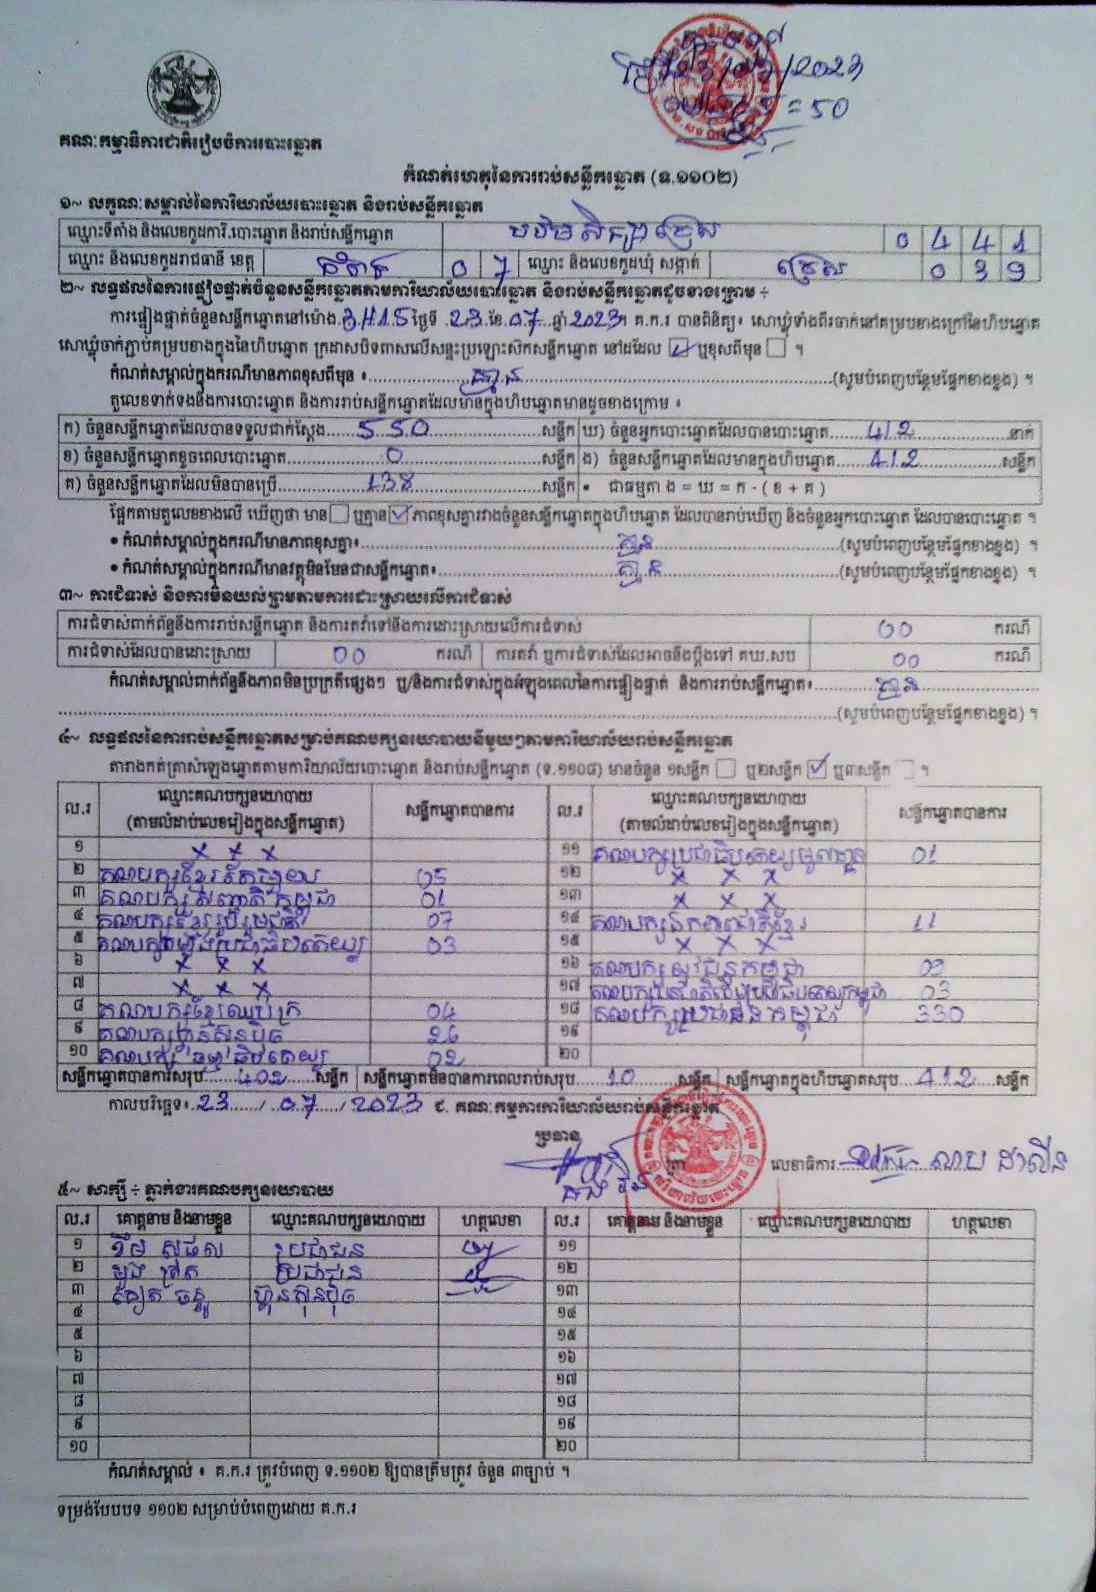 គណៈកម្មាធិការជាតិរៀបចំការបោះឆ្នោត
/2023
= 50
កំណត់ហេតុនៃការរាប់សន្លឹកឆ្នោត (ទ.១១០២)
១~ លក្ខណៈសម្គាល់នៃការិយាល័យបោះឆ្នោត និងរាប់សន្លឹកឆ្នោត
ឈ្មោះទីតាំង និងលេខកូដការិ.បោះឆ្នោត និងរាប់សន្លឹកឆ្នោត 0 4 4 1
ឈ្មោះ និងលេខកូដរាជធានី ខេត្ត កំពត 0 7 ឈ្មោះ និងលេខកូដឃុំ សង្កាត់ ច្រេស 0 3 9
២~ លទ្ធផលនៃការផ្ទៀងផ្ទាត់ចំនួនសន្លឹកឆ្នោតតាមការិយាល័យបោះឆ្នោត និងរាប់សន្លឹកឆ្នោតដូចខាងក្រោម ÷
ការផ្ទៀងផ្ទាត់ចំនួនសន្លឹកឆ្នោតនៅម៉ោង 3:H15 ថ្ងៃទី 23 ខែ 07 ឆ្នាំ 2023។ គ.ក.រ បានពិនិត្យ៖ សោឃ្លុំទាំងពីរចាក់នៅគម្របខាងក្រៅនៃហិបឆ្នោត
សោឃ្លុំចាក់ភ្ជាប់គម្របខាងក្នុងនៃហិបឆ្នោត ក្រដាសបិទពាសលើសន្ទះប្រឡោះសិកសន្លឹកឆ្នោត នៅដដែល ☑ ឬខុសពីមុន ☐ ។
កំណត់សម្គាល់ក្នុងករណីមានភាពខុសពីមុន ៖ គ្មាន (សូមបំពេញបន្ថែមផ្នែកខាងខ្នង) ។
តួលេខទាក់ទងនឹងការបោះឆ្នោត និងការរាប់សន្លឹកឆ្នោតដែលមានក្នុងហិបឆ្នោតមានដូចខាងក្រោម ៖
ក) ចំនួនសន្លឹកឆ្នោតដែលបានទទួលជាក់ស្តែង 550 សន្លឹក ឃ) ចំនួនអ្នកបោះឆ្នោតដែលបានបោះឆ្នោត 412 នាក់
ខ) ចំនួនសន្លឹកឆ្នោតខូចពេលបោះឆ្នោត 0 សន្លឹក ង) ចំនួនសន្លឹកឆ្នោតដែលមានក្នុងហិបឆ្នោត 412 សន្លឹក
គ) ចំនួនសន្លឹកឆ្នោតដែលមិនបានប្រើ 138 សន្លឹក • ជាធម្មតា ង = ឃ = ក - ( ខ + គ )
ផ្អែកតាមតួលេខខាងលើ ឃើញថា មាន ☐ ឬគ្មាន ☑ ភាពខុសគ្នារវាងចំនួនសន្លឹកឆ្នោតក្នុងហិបឆ្នោត ដែលបានរាប់ឃើញ និងចំនួនអ្នកបោះឆ្នោត ដែលបានបោះឆ្នោត ។
• កំណត់សម្គាល់ក្នុងករណីមានភាពខុសគ្នា៖ គ្មាន (សូមបំពេញបន្ថែមផ្នែកខាងខ្នង) ។
• កំណត់សម្គាល់ក្នុងករណីមានវត្ថុមិនមែនជាសន្លឹកឆ្នោត៖ គ្មាន (សូមបំពេញបន្ថែមផ្នែកខាងខ្នង) ។
៣~ ការជំទាស់ និងការមិនយល់ព្រមតាមការដោះស្រាយលើការជំទាស់
ការជំទាស់ពាក់ព័ន្ធនឹងការរាប់សន្លឹកឆ្នោត និងការតវ៉ាទៅនឹងការដោះស្រាយលើការជំទាស់ 00 ករណី
ការជំទាស់ដែលបានដោះស្រាយ 00 ករណី ការតវ៉ា ឬការជំទាស់ដែលអាចនឹងប្តឹងទៅ គឃ.សប 00 ករណី
កំណត់សម្គាល់ពាក់ព័ន្ធនឹងភាពមិនប្រក្រតីផ្សេងៗ ឬ/និងការជំទាស់ក្នុងអំឡុងពេលនៃការផ្ទៀងផ្ទាត់ និងការរាប់សន្លឹកឆ្នោត៖ គ្មាន
(សូមបំពេញបន្ថែមផ្នែកខាងខ្នង) ។
៤~ លទ្ធផលនៃការរាប់សន្លឹកឆ្នោតសម្រាប់គណបក្សនយោបាយនីមួយៗតាមការិយាល័យរាប់សន្លឹកឆ្នោត
តារាងកត់ត្រាសំឡេងឆ្នោតតាមការិយាល័យបោះឆ្នោត និងរាប់សន្លឹកឆ្នោត (ទ.១១០៨) មានចំនួន ១សន្លឹក ☐ ឬ២សន្លឹក ☑ ឬ៣សន្លឹក ☐ ។
ល.រ ឈ្មោះគណបក្សនយោបាយ (តាមលំដាប់លេខរៀងក្នុងសន្លឹកឆ្នោត) សន្លឹកឆ្នោតបានការ ល.រ ឈ្មោះគណបក្សនយោបាយ (តាមលំដាប់លេខរៀងក្នុងសន្លឹកឆ្នោត) សន្លឹកឆ្នោតបានការ
១ x x x ១១ គណបក្សប្រជាធិបតេយ្យមូលដ្ឋាន 01
២ 05 ១២ x x x
៣ គណបក្ស កម្ពុជា 01 ១៣ x x x
៤ គណបក្សខ្មែររួបរួមជាតិ 07 ១៤ គណបក្សឯកភាពជាតិខ្មែរ 11
៥ គណបក្ស ប្រជាធិបតេយ្យ 03 ១៥ x x x
៦ x x x ១៦ គណបក្ស កម្ពុជា
៧ x x x ១៧ គណបក្ស 03
៨ គណបក្សខ្មែរឈប់ក្រ 04 ១៨ គណបក្សប្រជាជនកម្ពុជា 330
៩ គណបក្សហ្វ៊ុនស៊ិនប៉ិច 26 ១៩
១០ គណបក្ស ធម្មាធិបតេយ្យ 02 ២០
សន្លឹកឆ្នោតបានការសរុប 402 សន្លឹក សន្លឹកឆ្នោតមិនបានការពេលរាប់សរុប 10 សន្លឹក សន្លឹកឆ្នោតក្នុងហិបឆ្នោតសរុប 412 សន្លឹក
កាលបរិច្ឆេទ៖ 23 / 07 / 2023 ៩. គណៈកម្មការការិយាល័យរាប់សន្លឹកឆ្នោត
ប្រធាន
លេខាធិការ
៥~ សាក្សី ÷ ភ្នាក់ងារគណបក្សនយោបាយ
ល.រ គោត្តនាម និងនាមខ្លួន ឈ្មោះគណបក្សនយោបាយ ហត្ថលេខា ល.រ គោត្តនាម និងនាមខ្លួន ឈ្មោះគណបក្សនយោបាយ ហត្ថលេខា
១ ប្រជាជន ១១
២ ប្រជាជន ១២
៣ ហ្វ៊ុនស៊ិនប៉ិច ១៣
៤ ១៤
៥ ១៥
៦ ១៦
៧ ១៧
៨ ១៨
៩ ១៩
១០ ២០
កំណត់សម្គាល់ ៖ គ.ក.រ ត្រូវបំពេញ ទ.១១០២ ឱ្យបានត្រឹមត្រូវ ចំនួន ៣ច្បាប់ ។
ទម្រង់បែបបទ ១១០២ សម្រាប់បំពេញដោយ គ.ក.រ